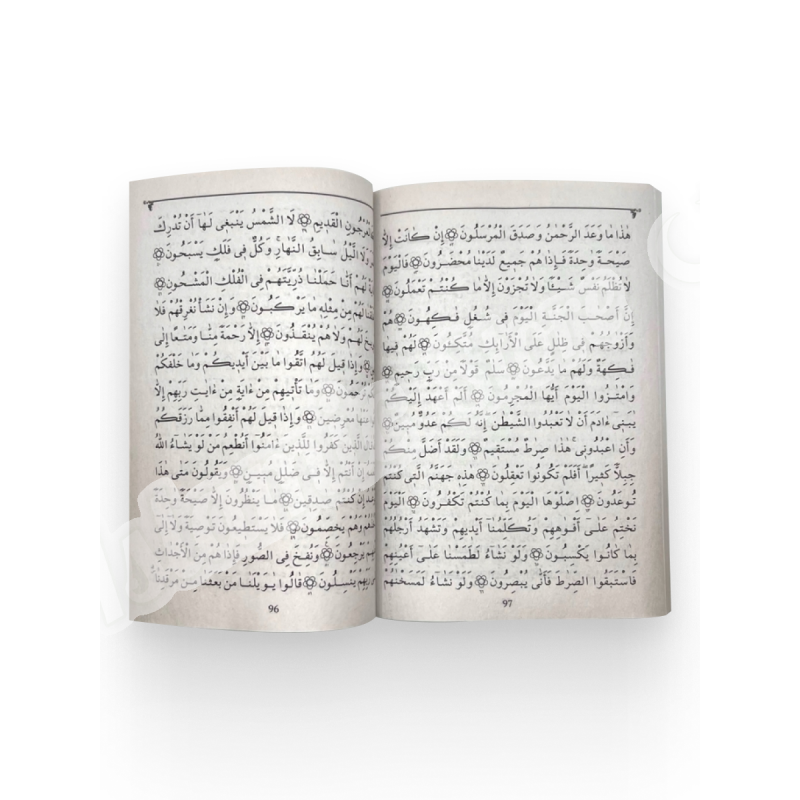 الْقَدِيمِ ۝ لَا الشَّمْسُ يَنْبَغِى لَهَآ أَنْ تُدْرِكَ
وَلَا الَّيْلُ سَابِقُ النَّهَارِ وَكُلٌّ فِى فَلَكٍ يَسْبَحُونَ ۝
لَهُمْ أَنَّا حَمَلْنَا ذُرِّيَّتَهُمْ فِى الْفُلْكِ الْمَشْحُونِ ۝
لَهُمْ مِنْ مِثْلِهِ مَا يَرْكَبُونَ ۝ وَإِنْ نَشَأْ نُغْرِقْهُمْ فَلَا
لَهُمْ وَلَا هُمْ يُنْقَذُونَ ۝ إِلَّا رَحْمَةً مِنَّا وَمَتَٰعًا إِلَىٰ
۝ وَإِذَا قِيلَ لَهُمُ اتَّقُوا مَا بَيْنَ أَيْدِيكُمْ وَمَا خَلْفَكُمْ
تُرْحَمُونَ ۝ وَمَا تَأْتِيهِمْ مِنْ ءَايَةٍ مِنْ ءَايَٰتِ رَبِّهِمْ إِلَّا
عَنْهَا مُعْرِضِينَ ۝ وَإِذَا قِيلَ لَهُمْ أَنْفِقُوا مِمَّا رَزَقَكُمُ
الَّذِينَ كَفَرُوا لِلَّذِينَ ءَامَنُوا أَنُطْعِمُ مَنْ لَوْ يَشَآءُ اللَّهُ
إِنْ أَنْتُمْ إِلَّا فِى ضَلَٰلٍ مُبِينٍ ۝ وَيَقُولُونَ مَتَىٰ هَٰذَا
إِنْ كُنْتُمْ صَٰدِقِينَ ۝ مَا يَنْظُرُونَ إِلَّا صَيْحَةً وَٰحِدَةً
وَهُمْ يَخِصِّمُونَ ۝ فَلَا يَسْتَطِيعُونَ تَوْصِيَةً وَلَآ إِلَىٰ
يَرْجِعُونَ ۝ وَنُفِخَ فِى الصُّورِ فَإِذَا هُمْ مِنَ الْأَجْدَاثِ
رَبِّهِمْ يَنْسِلُونَ ۝ قَالُوا يَٰوَيْلَنَا مَنْ بَعَثَنَا مِنْ مَرْقَدِنَا
96
هَٰذَا مَا وَعَدَ الرَّحْمَٰنُ وَصَدَقَ الْمُرْسَلُونَ ۝ إِنْ كَانَتْ إِلَّا
صَيْحَةً وَٰحِدَةً فَإِذَا هُمْ جَمِيعٌ لَدَيْنَا مُحْضَرُونَ ۝ فَالْيَوْمَ
لَا تُظْلَمُ نَفْسٌ شَيْئًا وَلَا تُجْزَوْنَ إِلَّا مَا كُنْتُمْ تَعْمَلُونَ ۝
إِنَّ أَصْحَٰبَ الْجَنَّةِ الْيَوْمَ فِى شُغُلٍ فَٰكِهُونَ ۝ هُمْ
وَأَزْوَٰجُهُمْ فِى ظِلَٰلٍ عَلَى الْأَرَآئِكِ مُتَّكِئُونَ ۝ لَهُمْ فِيهَا
فَٰكِهَةٌ وَلَهُمْ مَا يَدَّعُونَ ۝ سَلَٰمٌ قَوْلًا مِنْ رَبٍّ رَحِيمٍ ۝
وَامْتَٰزُوا الْيَوْمَ أَيُّهَا الْمُجْرِمُونَ ۝ أَلَمْ أَعْهَدْ إِلَيْكُمْ
يَٰبَنِىٓ ءَادَمَ أَنْ لَا تَعْبُدُوا الشَّيْطَٰنَ إِنَّهُ لَكُمْ عَدُوٌّ مُبِينٌ ۝
وَأَنِ اعْبُدُونِى هَٰذَا صِرَٰطٌ مُسْتَقِيمٌ ۝ وَلَقَدْ أَضَلَّ مِنْكُمْ
جِبِلًّا كَثِيرًا أَفَلَمْ تَكُونُوا تَعْقِلُونَ ۝ هَٰذِهِ جَهَنَّمُ الَّتِى كُنْتُمْ
تُوعَدُونَ ۝ اصْلَوْهَا الْيَوْمَ بِمَا كُنْتُمْ تَكْفُرُونَ ۝ الْيَوْمَ
نَخْتِمُ عَلَىٰٓ أَفْوَٰهِهِمْ وَتُكَلِّمُنَآ أَيْدِيهِمْ وَتَشْهَدُ أَرْجُلُهُمْ
بِمَا كَانُوا يَكْسِبُونَ ۝ وَلَوْ نَشَآءُ لَطَمَسْنَا عَلَىٰٓ أَعْيُنِهِمْ
فَاسْتَبَقُوا الصِّرَٰطَ فَأَنَّىٰ يُبْصِرُونَ ۝ وَلَوْ نَشَآءُ لَمَسَخْنَٰهُمْ
97